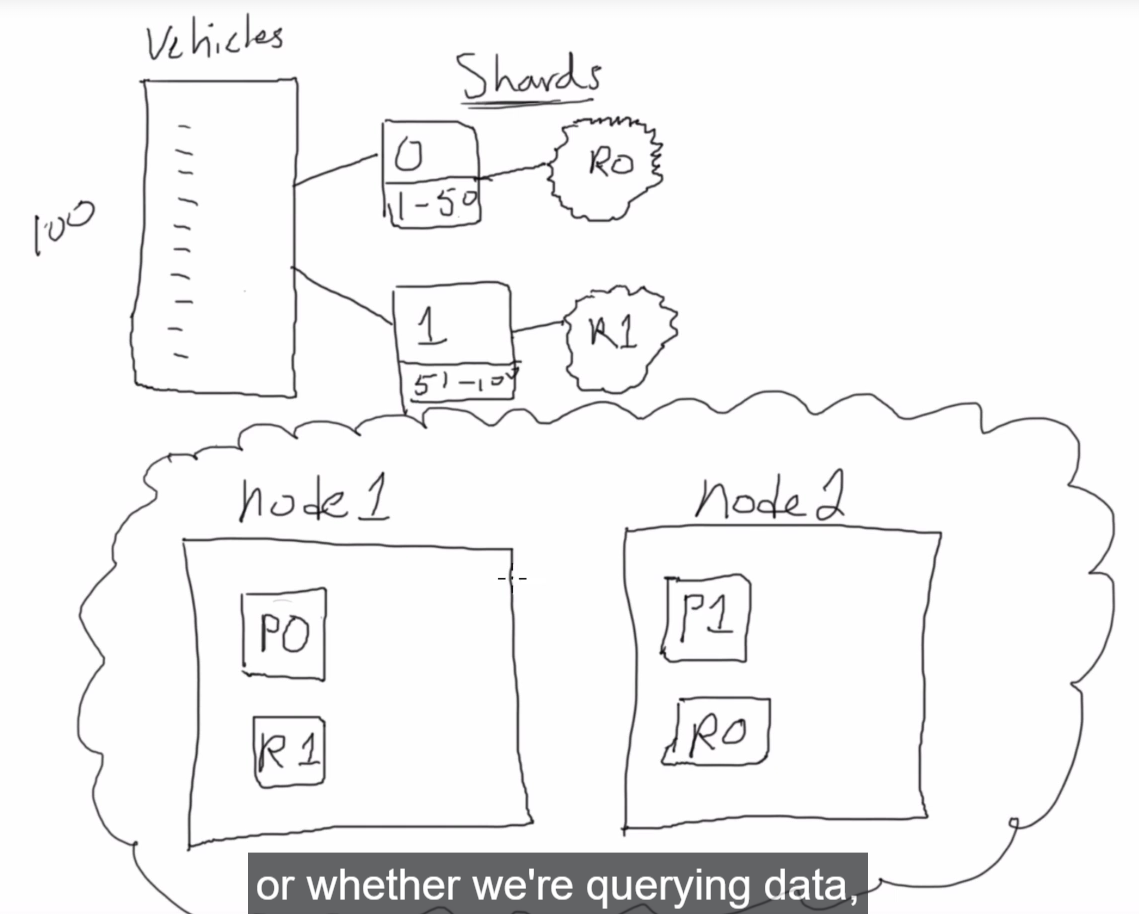 Vehicles
Shards
100
0
1-50
R0
1
51-100
R1
node1
node2
P0
R1
P1
R0
or whether we're querying data,